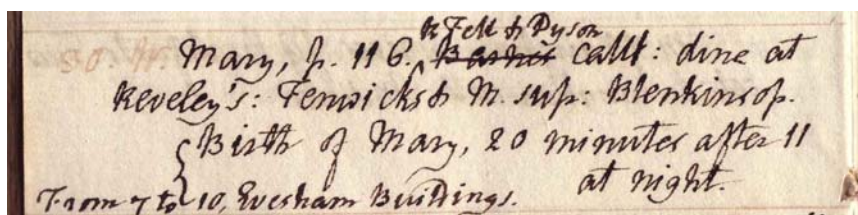 Fell & Dyson
30. W. Mary, p. 116. call: dine at
Reveley's: Fenwicks & M. sup: Blenkinsop.
Birth of Mary, 20 minutes after 11
at night.
From 7 to 10, Evesham Buildings.